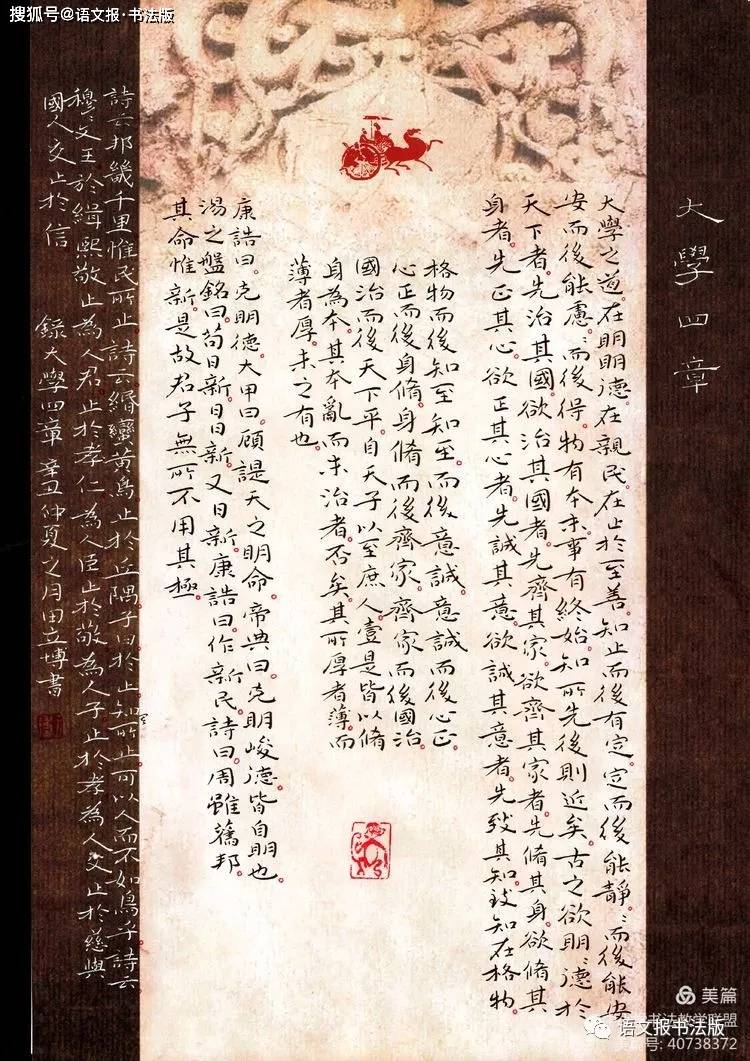 搜狐号@语文报·书法版
大學四章
大學之道。在明明德。在親民。在止於至善。知止而後有定。定而後能靜。〻而後能安
安而後能慮。〻而後得。物有本末。事有終始。知所先後則近矣。古之欲明〻德於
天下者。先治其國。欲治其國者。先齊其家。欲齊其家者。先脩其身。欲脩其
身者。先正其心。欲正其心者。先誠其意。欲誠其意者。先致其知。致知在格物。
格物而後知至。知至而後意誠。意誠而後心正。
心正而後身脩。身脩而後齊家。齊家而後國治
國治而後天下平。自天子以至庶人。壹是皆以脩
身為本。其本亂而末治者。否矣。其所厚者薄。而
薄者厚。未之有也。
康誥曰。克明德。大甲曰。顧諟天之明命。帝典曰。克明峻德。皆自明也。
湯之盤銘曰。苟日新。日日新。又日新。康誥曰。作新民。詩曰。周雖舊邦。
其命惟新。是故君子無所不用其極。
詩云邦畿千里惟民所止詩云緡蠻黃鳥止於丘隅子曰於止知所止可以人而不如鳥乎詩云
穆〻文王於緝熙敬止為人君止於孝仁為人臣止於敬為人子止於孝為人父止於慈與
國人交止於信 錄大學四章 辛丑仲夏之月田立博書
美篇
书法教学联盟
语文报书法版
号: 40738372